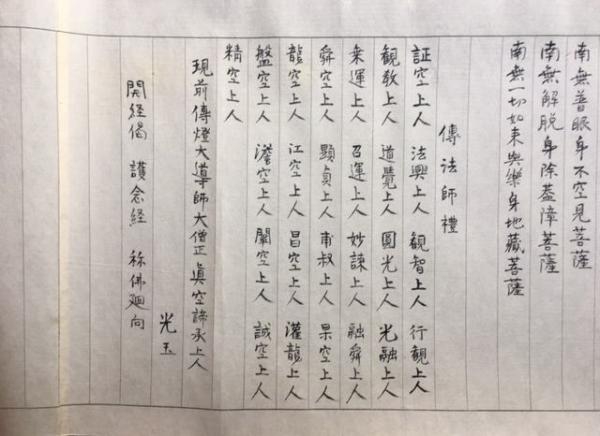 南無普眼身不空見菩薩
南無解脱身除蓋障菩薩
南無一切如来與樂身地藏菩薩
傳法師禮
証空上人 法興上人 観智上人 行観上人
観教上人 道覺上人 圓光上人 光融上人
乗運上人 召運上人 妙諫上人 融舜上人
舜空上人 顕貞上人 甫叔上人 果空上人
龍空上人 江空上人 昌空上人 灌龍上人
盤空上人 澄空上人 闡空上人 誠空上人
精空上人
現前傳燈大導師大僧正 眞空諦承上人
光玉
開経偈 護念経 称佛廻向